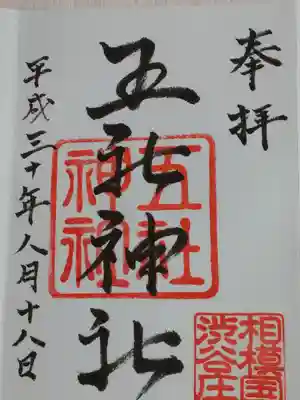 奉拝
五社神社
平成三十年八月十八日
五社
神社
相模国
渋谷庄